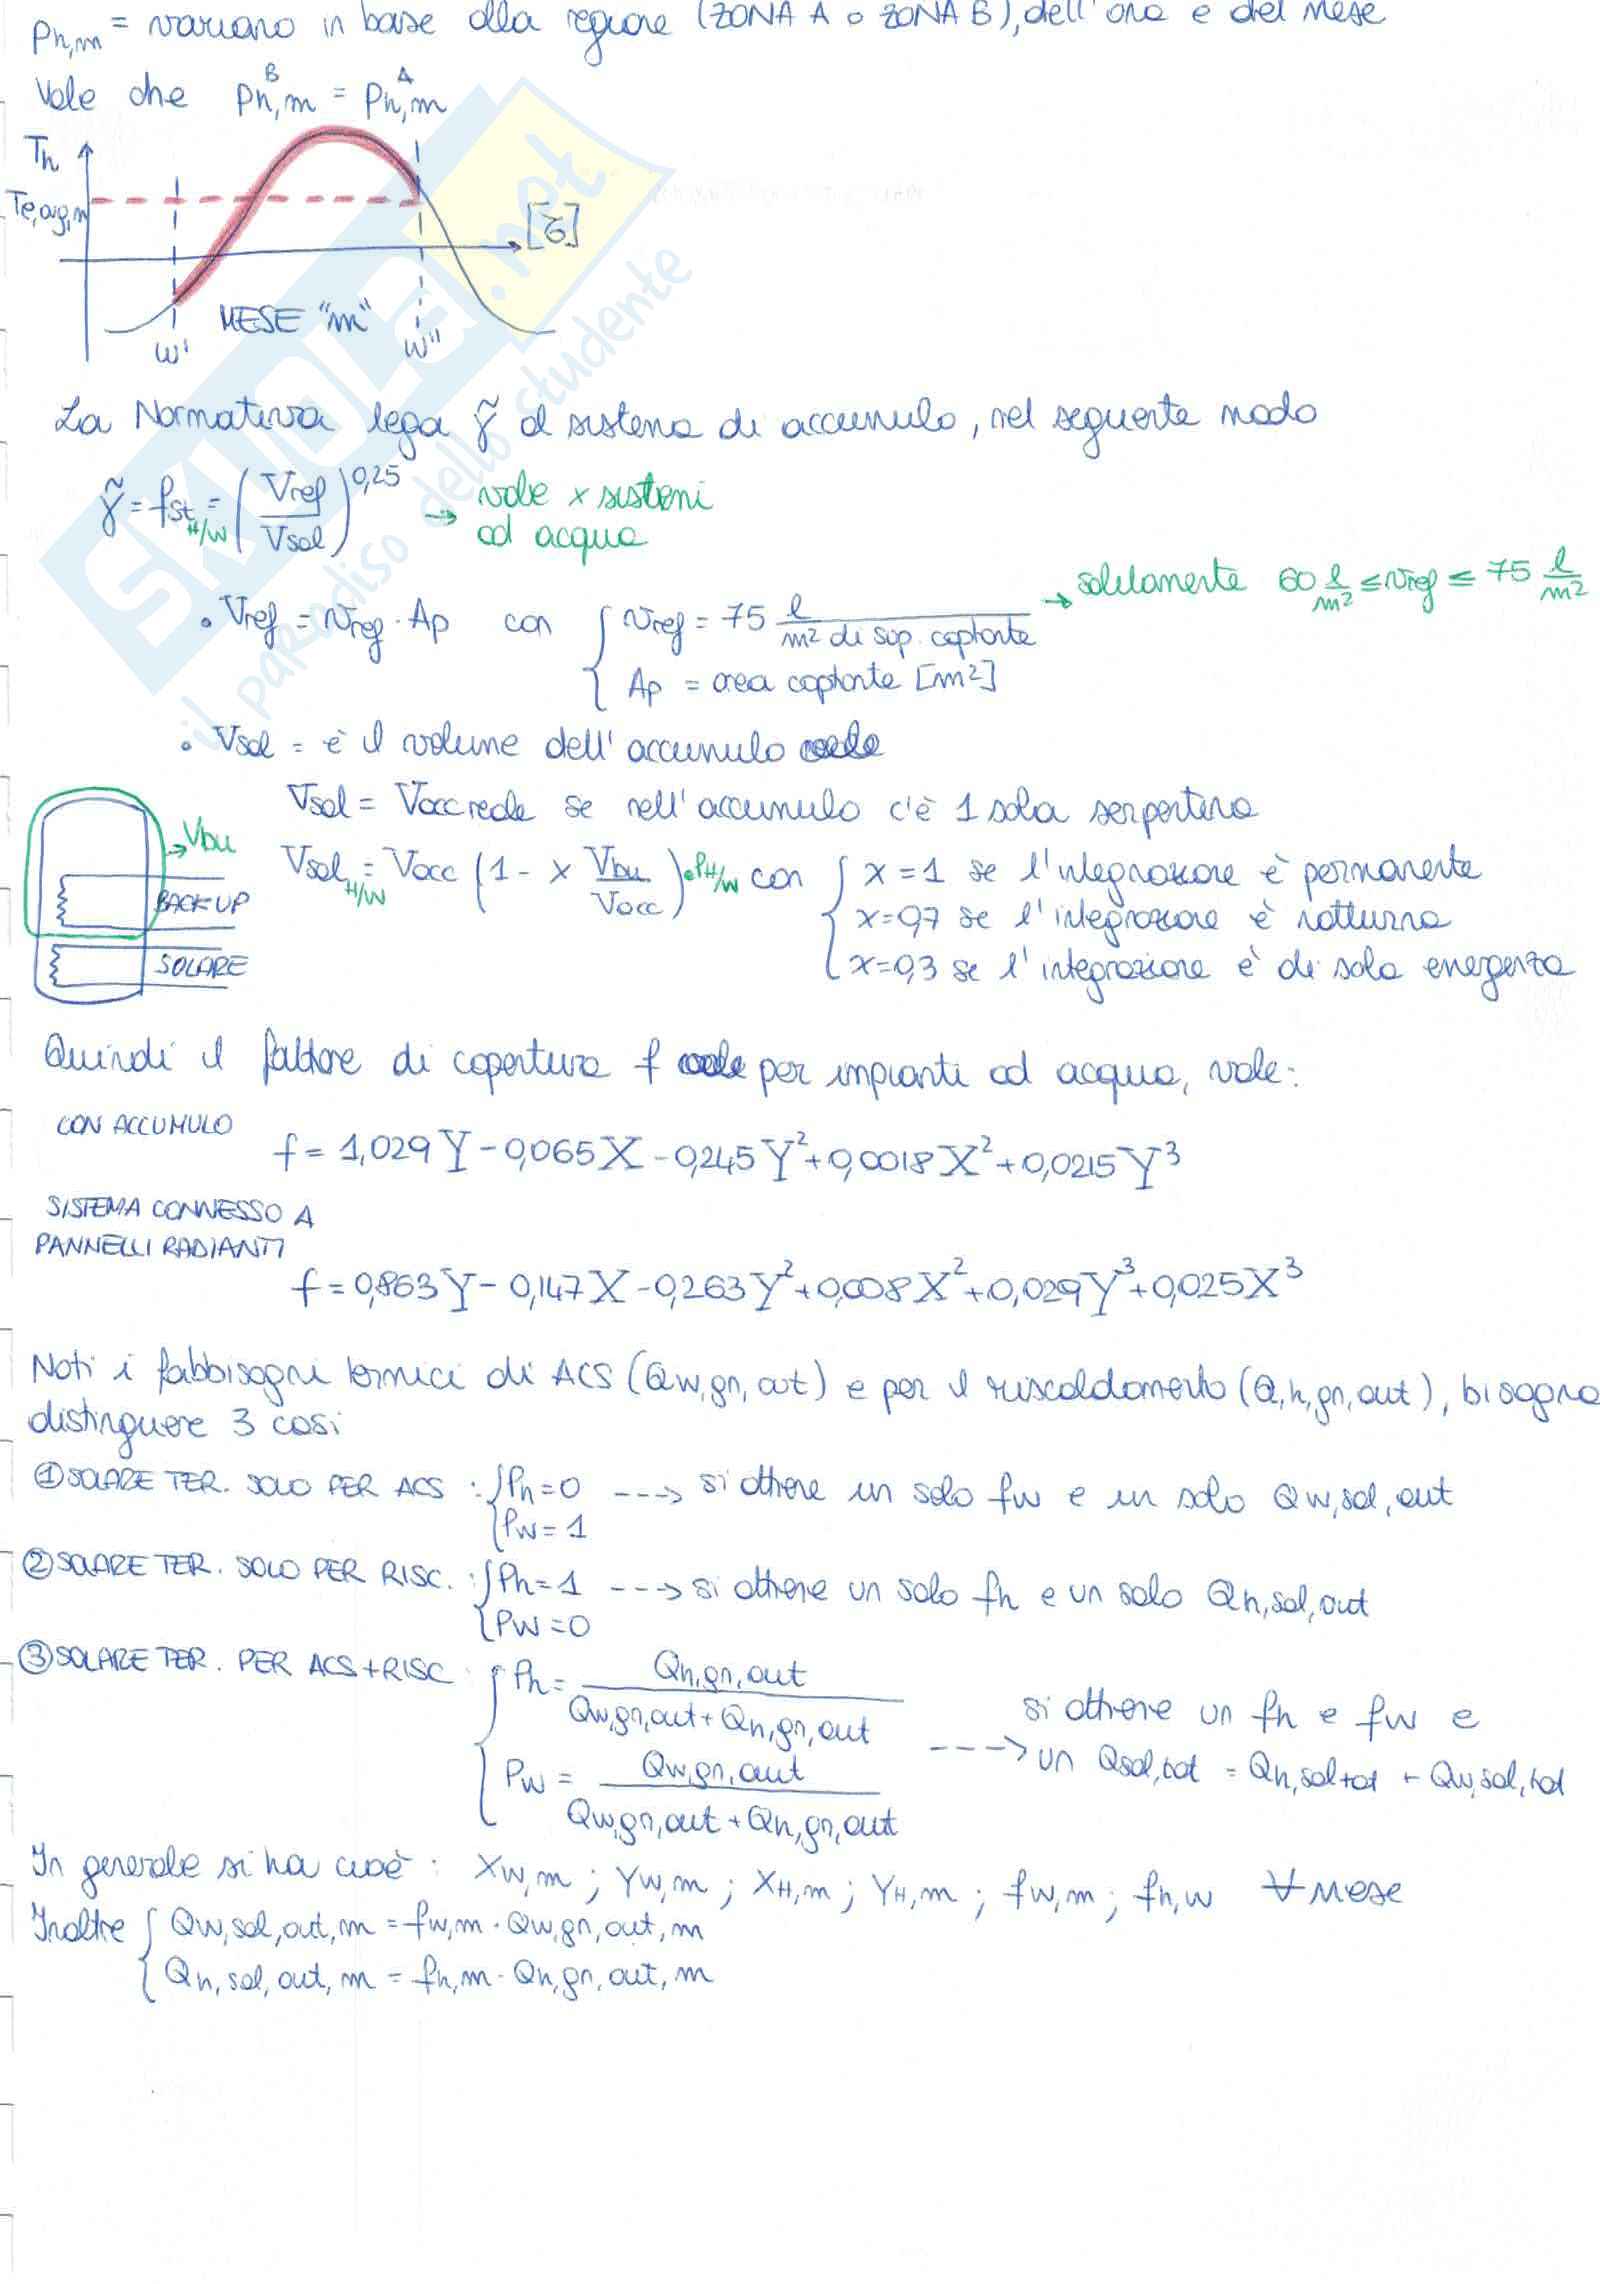 Pn,m = variano in base alla regione (ZONA A o ZONA B), dell'ora e del mese
Vale che Pn,m^B = Pn,m^A
Th
Te,avg,m
[τ]
MESE "m"
w' w''
La Normativa lega γ̃ al sistema di accumulo, nel seguente modo
γ̃ = fst H/W = (Vref/Vsol)^0,25 → vale x sistemi
ad acqua
• Vref = vref · Ap con { vref = 75 l/m² di sup. captante → solitamente 60 l/m² ≤ vref ≤ 75 l/m²
Ap = area captante [m²]
• Vsol = è il volume dell'accumulo
Vsol = Vacc reale se nell'accumulo c'è 1 sola serpentina
→ Vbu
Vsol H/W = Vacc (1 - x Vbu/Vacc) · PH/W con { x = 1 se l'integrazione è permanente
x=0,7 se l'integrazione è notturna
x=0,3 se l'integrazione è di sola emergenza
BACK UP
SOLARE
Quindi il fattore di copertura f per impianti ad acqua, vale:
CON ACCUMULO
f = 1,029Y - 0,065X - 0,245Y² + 0,0018X² + 0,0215Y³
SISTEMA CONNESSO A
PANNELLI RADIANTI
f = 0,863Y - 0,147X - 0,263Y² + 0,008X² + 0,029Y³ + 0,025X³
Noti i fabbisogni termici di ACS (Qw,gn,out) e per il riscaldamento (Q,h,gn,out), bisogna
distinguere 3 casi
① SOLARE TER. SOLO PER ACS : { Ph=0 ---> si ottiene un solo fw e un solo Qw,sol,out
Pw=1
② SOLARE TER. SOLO PER RISC. : { Ph=1 ---> si ottiene un solo fh e un solo Qh,sol,out
Pw=0
③ SOLARE TER. PER ACS+RISC : { Ph = Qh,gn,out / (Qw,gn,out + Qh,gn,out)
Pw = Qw,gn,out / (Qw,gn,out + Qh,gn,out)
---> si ottiene un fh e fw e
un Qsol,tot = Qh,sol,tot + Qw,sol,tot
In generale si ha cioè : Xw,m ; Yw,m ; XH,m ; YH,m ; fw,m ; fh,w ∀ mese
Inoltre { Qw,sol,out,m = fw,m · Qw,gn,out,m
Qh,sol,out,m = fh,m · Qh,gn,out,m
SKUOLA.net
il paradiso dello studente